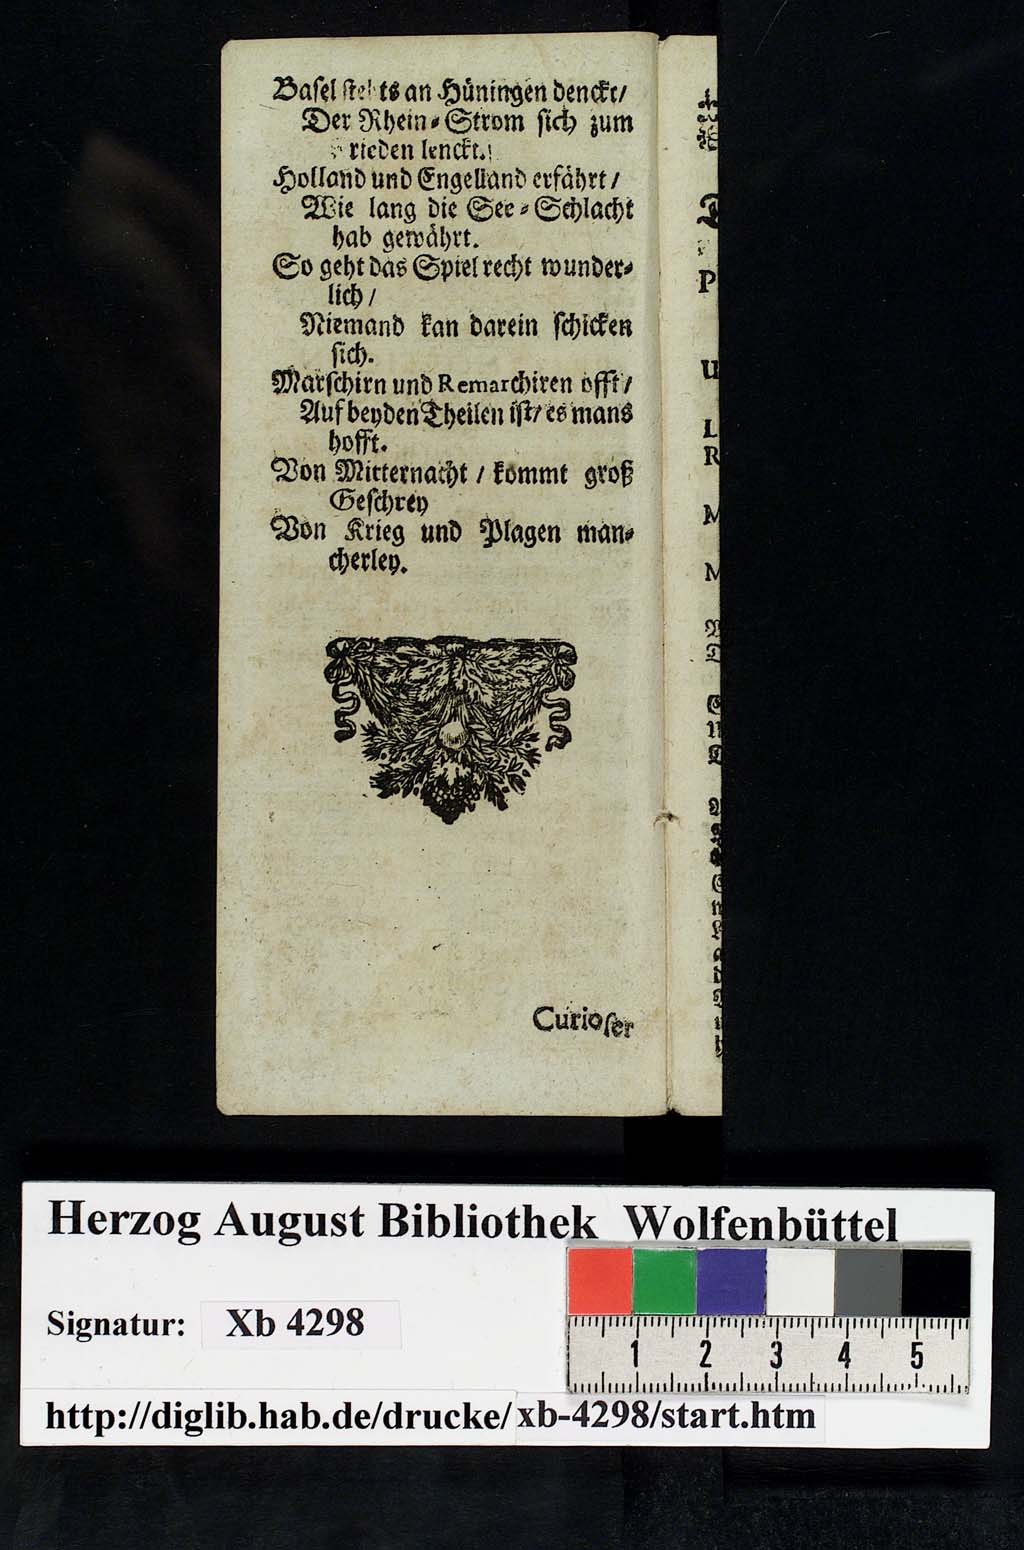 Basel stehts an Hüningen denckt/
Der Rhein-Strom sich zum
rieden lenckt.
Holland und Engelland erfährt/
Wie lang die See-Schlacht
hab gewährt.
So geht das Spiel recht wunder-
lich/
Niemand kan darein schicken
sich.
Marschirn und Remarchiren offt/
Auf beyden Theilen ist/ es mans
hofft.
Von Mitternacht / kommt groß
Geschrey
Von Krieg und Plagen man-
cherley.
Curioser
Herzog August Bibliothek Wolfenbüttel
Signatur: Xb 4298
1 2 3 4 5
http://diglib.hab.de/drucke/xb-4298/start.htm